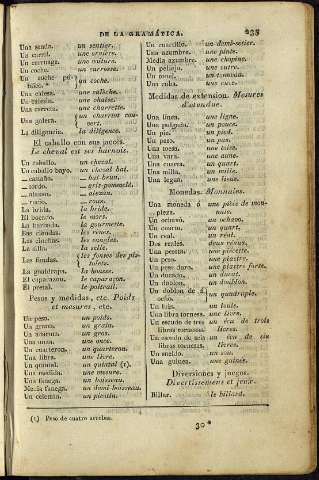 DE LA GRAMÁTICA. 235
Una senda. un sentier.
Un carril. une ornière.
Un carruage. une voiture.
Un coche. un carrosse.
Un coche público. un coche.
Una calesa. une calèche.
Un calesin. une chaise.
Una carreta. une charrette.
Una galera. un charriot couvert.
La diligencia. la diligence.
El caballo con sus jaeces.
Le cheval et ses harnois.
Un caballo. un cheval.
Un caballo bayo. un cheval bai.
— castaño. — bai brun.
— tordo. — gris-pommelé.
— alazan. — alezan.
— rucio. — rouan.
La brida. la bride.
El bocado. le mors.
La barbada. la gourmette.
Las riendas. les rênes.
Las cinchas. les sangles.
La silla. la selle.
Las fundas. les fontes des pistolets.
La gualdrapa. la housse.
El caparazon. le caparaçon.
El pretal. le poitrail.
Pesos y medidas, etc. Poids
et mesures, etc.
Un peso. un poids.
Un grano. un grain.
Un adarme. un gros.
Una onza. une once.
Un cuarteron. un quarteron.
Una libra. une livre.
Un quintal. un quintal (1).
Una medida. une mesure.
Una fanega. un boisseau.
Media fanega. un demi-boisseau.
Un celemin. un picotin.
Un cuartillo. un demi-setier.
Una azumbre. une pinte.
Media azumbre. une chopine.
Un pellejo. une outre.
Un tonel. un tonneau.
Una cuba. une cuve.
Medidas de extension. Mesures
d'étendue.
Una línea. une ligne.
Una pulgada. un pouce.
Un pie. un pied.
Un paso. un pas.
Una toesa. une toise.
Una vara. une aune.
Una cuarta. un quart.
Una milla. un mille.
Una legua. une lieue.
Monedas. Monnaies.
Una moneda ó pieza. une pièce de monnaie.
Un ochavo. un ochavo.
Un cuarto. un quart.
Un real. un réal.
Dos reales. deux réaux.
Una peseta. une piécette.
Un peso. une piastre.
Un peso duro. une piastre forte.
Un ducado. un ducat.
Un doblon. un doublon.
Un doblon de á ocho. un quadruple.
Un luis. un louis.
Una libra tornesa. une livre.
Un escudo de tres libras tornesas. un écu de trois livres.
Un escudo de seis libras tornesas. un écu de six livres.
Un sueldo. un sou.
Una guinea. une guinée.
Diversiones y juegos.
Divertissemens et jeux.
Billar. le billard.
(1) Peso de cuatro arrobas.
30*